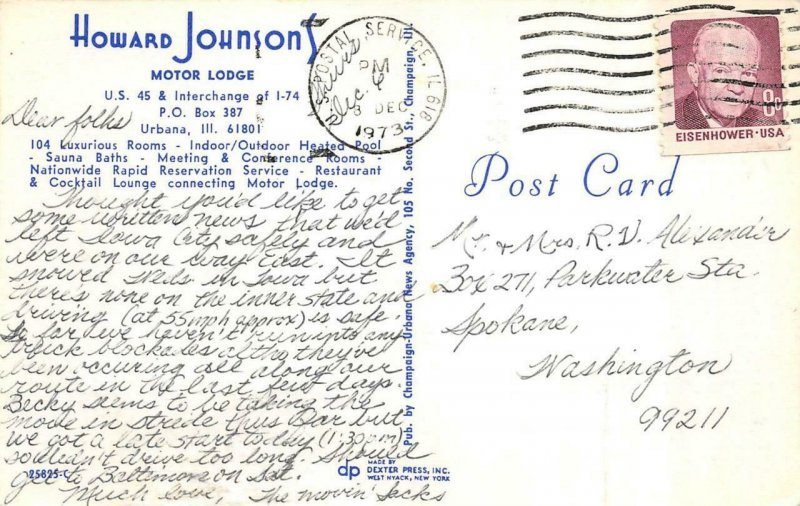 HOWARD JOHNSON'S
MOTOR LODGE
U.S. 45 & Interchange of I-74
P.O. Box 387
Urbana, Ill. 61801
104 Luxurious Rooms - Indoor/Outdoor Heated Pool
- Sauna Baths - Meeting & Conference Rooms -
Nationwide Rapid Reservation Service - Restaurant
& Cocktail Lounge connecting Motor Lodge.
Thurs
Dec. 6
Dear folks
Thought you'd like to get
some written news that we'd
left Iowa City safely and
were on our way East. It
snowed Weds in Iowa but
there's none on the inner state and
driving (at 55 mph approx) is safe.
So far we haven't run into any
truck blockades altho they've
been occuring all along our
route in the last few days.
Becky seems to be taking the
move in stride thus far but
we got a late start today (1:30 pm)
so didn't drive too long. Should
get to Baltimore on Sat.
Much love, The movin' Jacks
25825-C
Pub. by Champaign-Urbana News Agency, 105 No. Second St., Champaign, Ill.
POSTAL SERVICE, IL 618
PM
DEC
1973
EISENHOWER·USA
8c
Post Card
Mr. & Mrs. R.V. Alexander
Box 271, Parkwater Sta.
Spokane,
Washington
99211
dp
MADE BY
DEXTER PRESS, INC.
WEST NYACK, NEW YORK